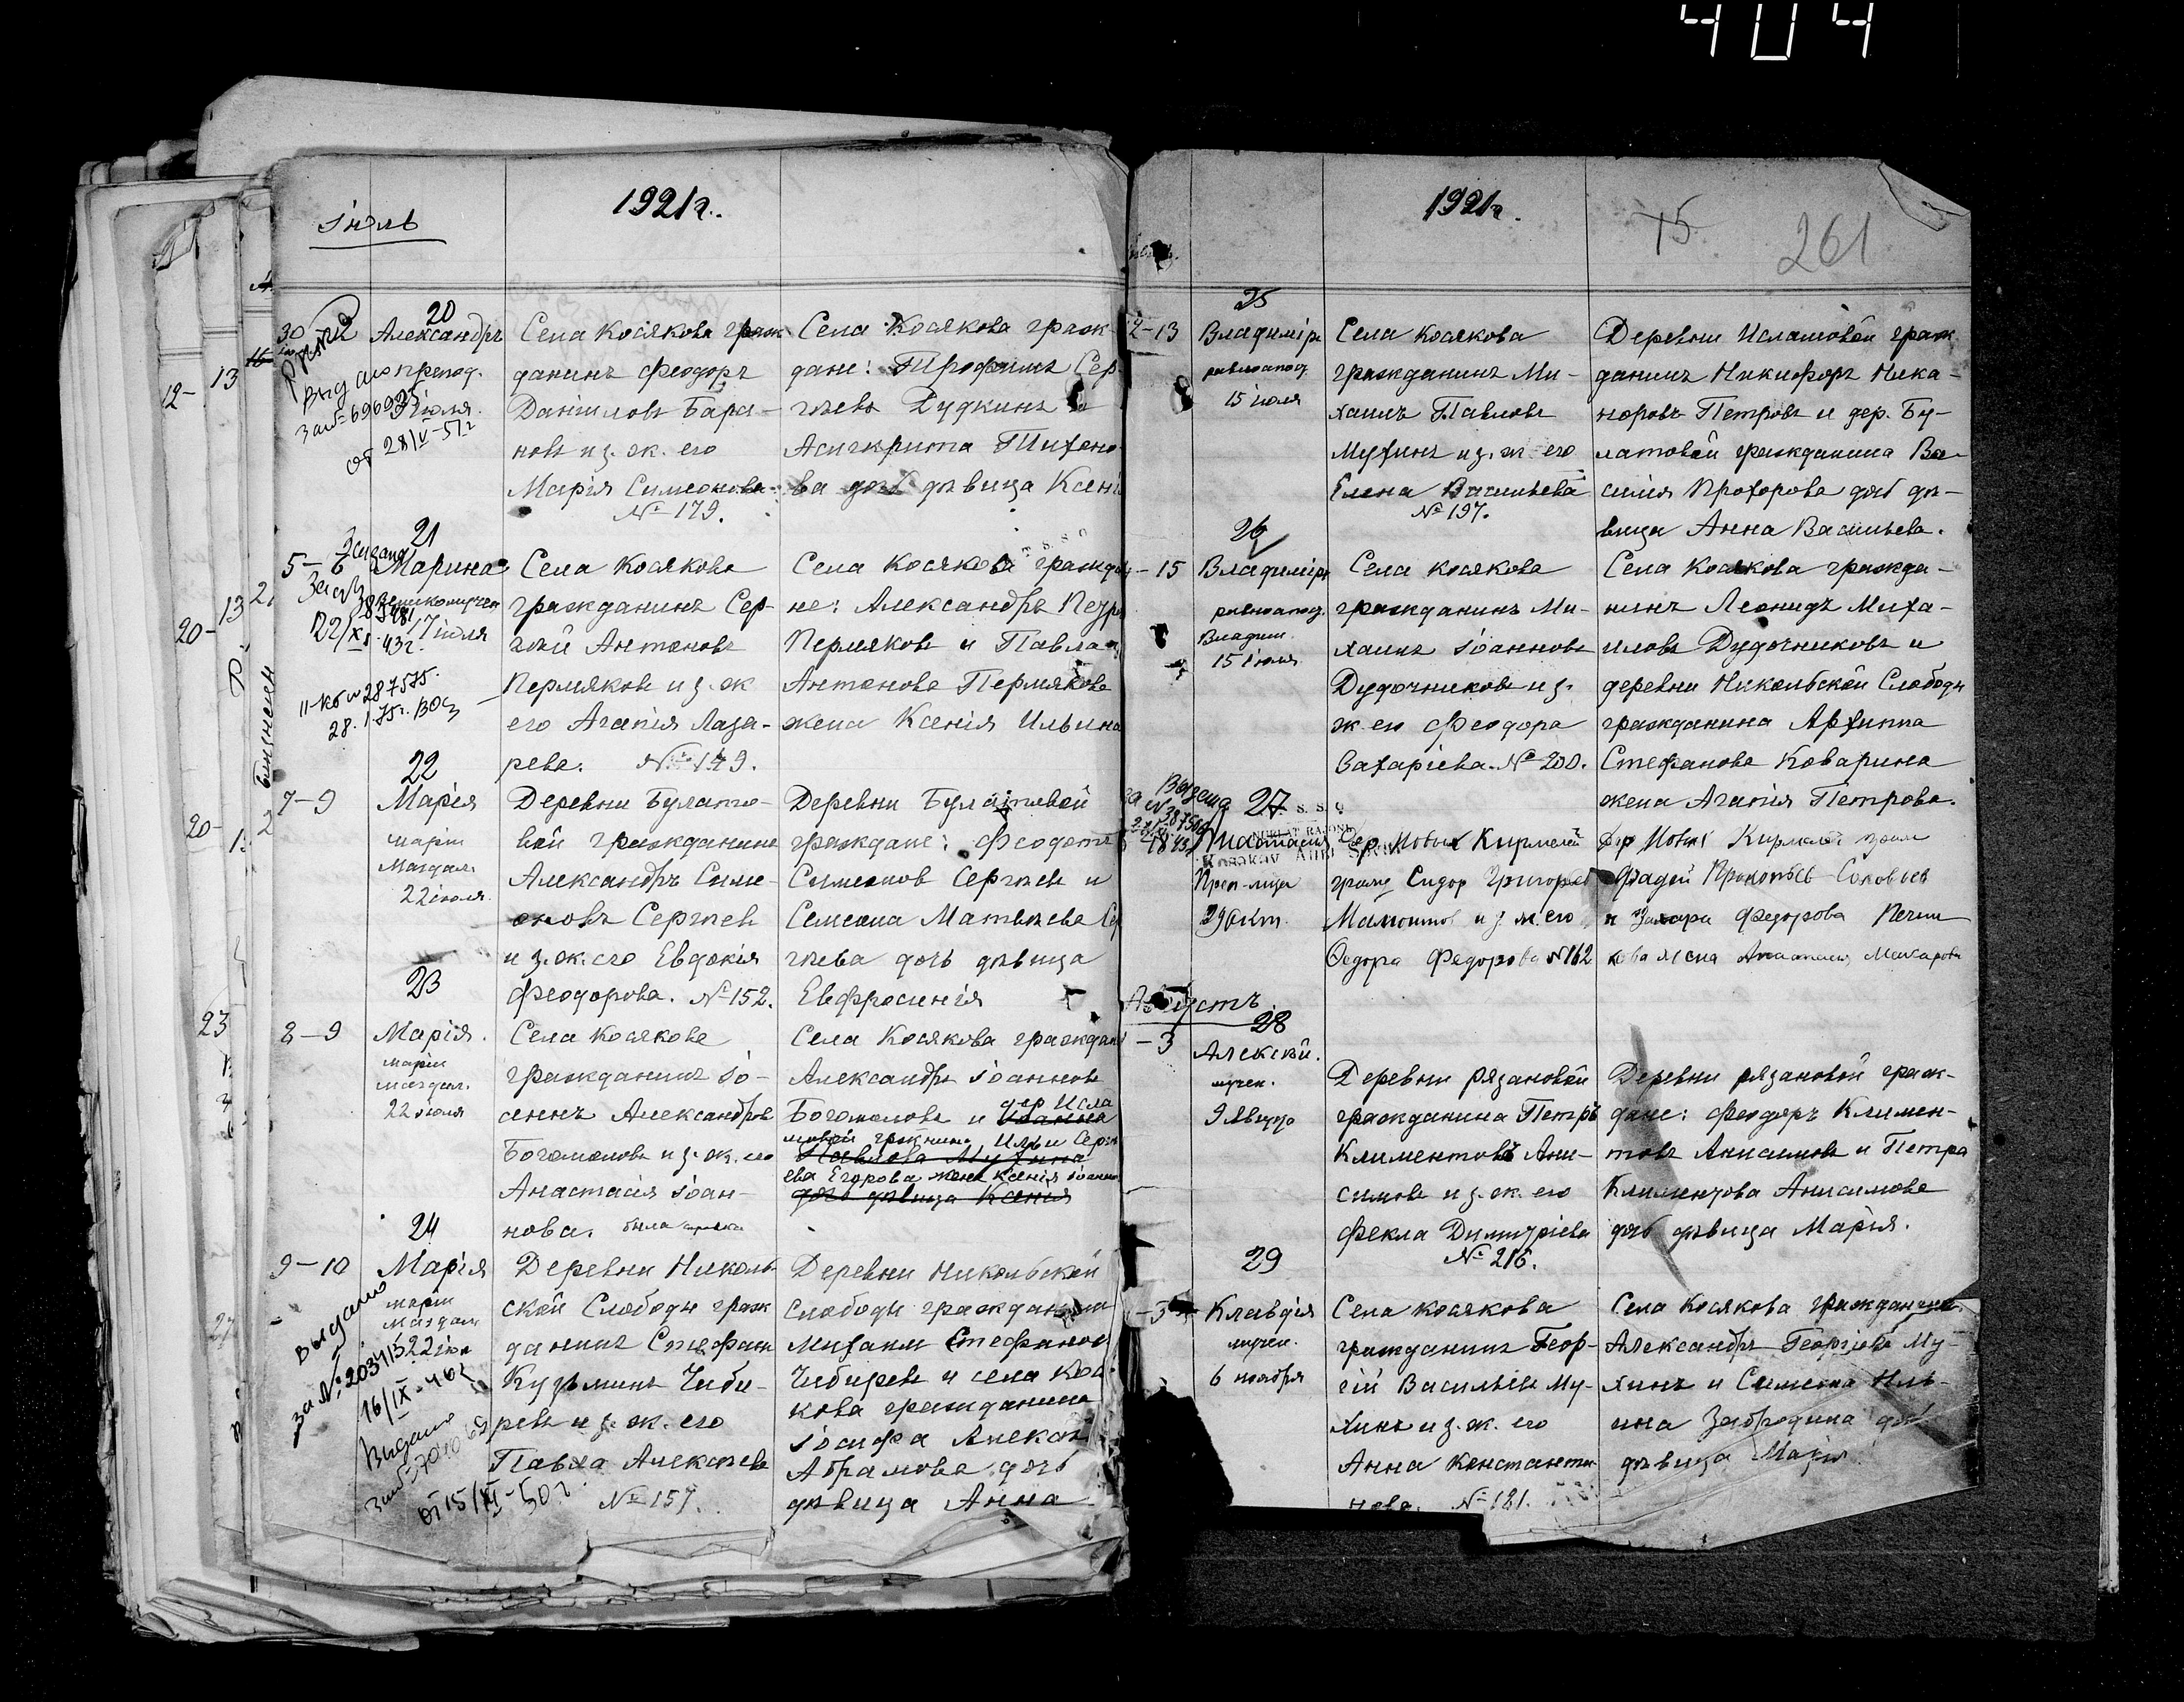 404
Iюль
1921г.
20
30
Александръ
препод.
9 iюля.
Выдано
от 28/V-51г
Села Косякова граж
данинъ Феодоръ
Данiиловъ Бара-
новъ и з. ж. его
Марiя Симеонова
№ 179.
Села Косякова граж
дане: Трофимъ Сер-
гѣевъ Дудкинъ и
Асигкрита Тихоно-
ва дочь дѣвица Ксенi
21
5-6
Марина
великомучен
17 iюля
22/XI-43г.
287575.
28.I.75г. ВОЗ
Села Косякова
гражданинъ Сер-
гѣй Антоновъ
Пермяковъ и з. ж
его Агапiя Лаза-
рева. № 149.
Села Косякова гражда
не: Александръ Петро
Пермяковъ и Павла
Антонова Пермякова
жена Ксенiя Ильина
22
7-9
Марiя
марiи
Магдал.
22 iюля.
Деревни Булато-
вой гражданинъ
Александръ Симе-
оновъ Сергѣев
и з. ж. его Евдокiя
Феодорова. № 152.
Деревни Булатовой
граждане: Феодотъ
Симеонов Сергѣев и
Симеона Матвѣева Сер
гѣева дочь дѣвица
Евфросинiя
23
8-9
Марiя.
марiи
магдал.
22 iюля
Села Косякова
гражданинъ Iо-
аннъ Александров
Богомоловъ и з. ж. его
Анастасiя Iоан-
нова.
Села Косякова граждан
Александръ Iоанновъ
Богомоловъ и Iоанна
дер Исла
мовой гражнина Ильи Серг
Павлова Мухина
ева Егорова жена Ксенiя Iоанно
дочь дѣвица Ксенiя
24
9-10
Марiя
марiи
магдал
22 iюл
Выдано
за № 203413
16/IX-46г
Выдано
от 15/XI-50г.
Деревни Николь-
ской Слободы граж
данинъ Стефан
Кузьминъ Чиби-
ревъ и з. ж. его
Павла Алексѣева
№ 157.
Деревни Никольской
Слободы гражданинъ
Михаил Стефанов
Чибирев и села Кося
кова гражданина
Iосифа Алекс
Абрамова дочь
дѣвица Анна
1921г.
75
261
25
2-13
Владимiръ
равноапод.
15 iюля
Села Косякова
гражданинъ Ми-
хаилъ Павловъ
Мухинъ и з. ж. его
Елена Васильева
№ 197.
Деревни Исламовой граж
данинъ Никифоръ Ника-
норовъ Петровъ и дер. Бу-
латовой гражданина Ва-
силiя Прохорова дочь дѣ-
вица Анна Васильева.
26
-15
Владимiръ
равноапод.
Владим.
15 iюля
Села Косякова
гражданинъ Ми-
хаилъ Iоанновъ
Дудочниковъ и з.
ж. его Феодора
Захарiева. № 200.
Села Косякова гражда-
нинъ Леонидъ Миха-
иловъ Дудочниковъ и
деревни Никольской Слободы
гражданина Архиппа
Стефанова Коварина
жена Агапiя Петрова.
27
Выдана
Анастасия
Преп-муча
29 окт.
Дер Новых Кирмелей
граж Сидор Григорьев
Мамонтов и з. ж. его
Федора Федорова №162
Дер Новых Кирмелей граж
Фадей Прокопьев Соловьев
и Захара Федорова Печни
кова жена Анастасия Макарова
Августъ
28
-3
Алексѣй.
мучен.
9 Августа
Деревни Рязановой
гражданина Петръ
Климентовъ Ани-
симовъ и з. ж. его
Фекла Димитрiева
№ 216.
Деревни Рязановой граж-
дане: Феодоръ Климен-
товъ Анисимовъ и Петра
Климентова Анисимова
дочь дѣвица Марiя.
29
-3
Клавдiя
мучен.
6 ноября
Села Косякова
гражданинъ Геор-
гiй Васильев Му-
хинъ и з. ж. его
Анна Константи
нова. № 181.
Села Косякова гражданинъ
Александръ Георгiевъ Му-
хинъ и Симеона Иль-
ина Забродина дочь
дѣвица Марiя